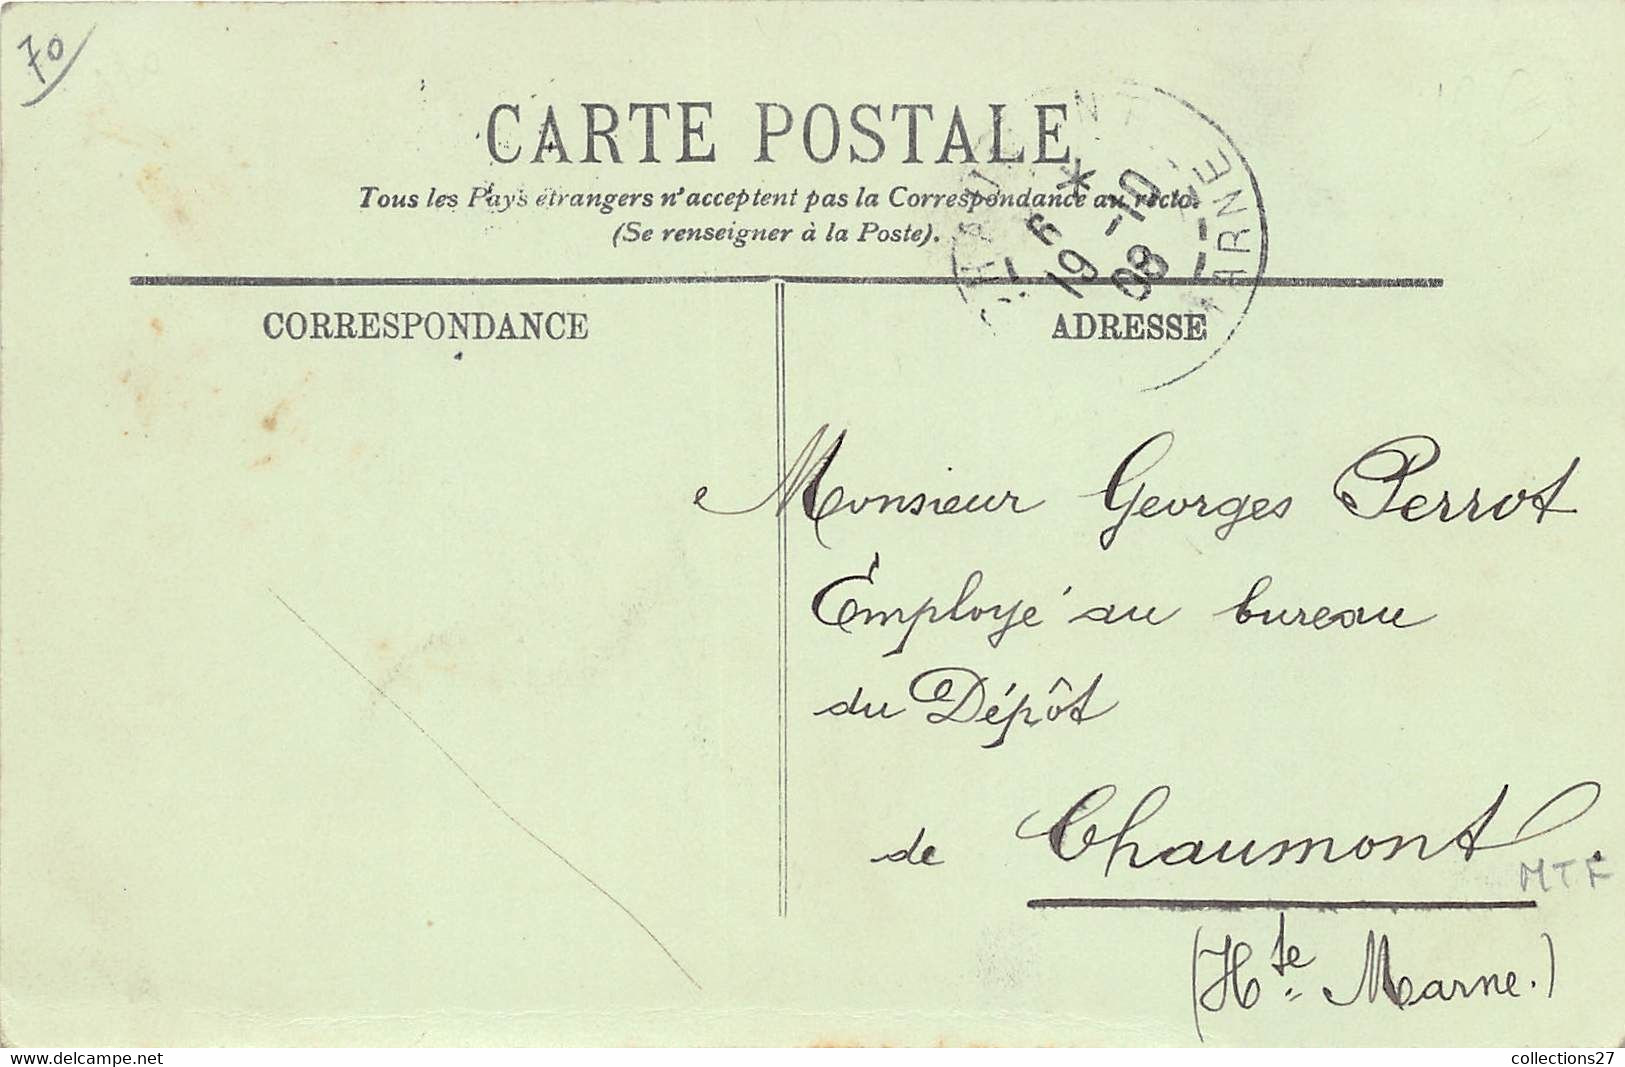 70
CARTE POSTALE
Tous les Pays étrangers n'acceptent pas la Correspondance au recto.
(Se renseigner à la Poste).
6 *
19 -10
08
MARNE
CORRESPONDANCE
ADRESSE
Monsieur Georges Perrot
Employé au bureau
du Dépôt
de Chaumont.
MTF
(Hte Marne.)
collections27